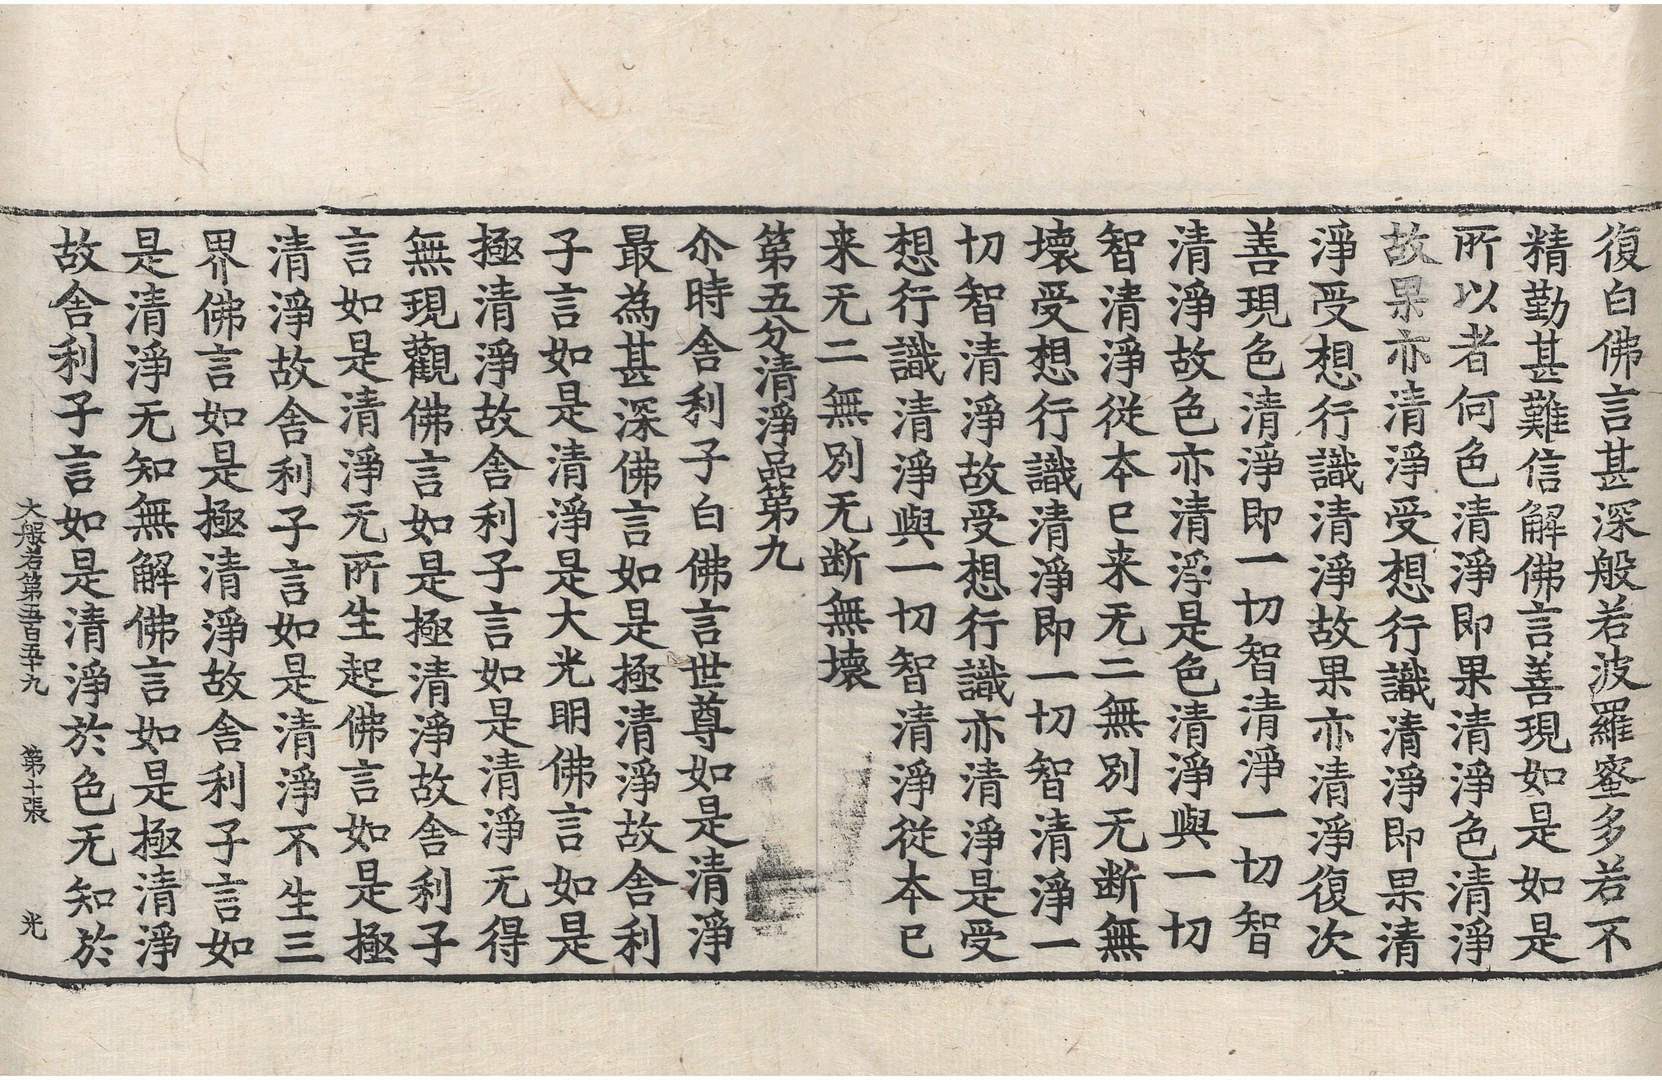 復白佛言甚深般若波羅蜜多若不
精勤甚難信解佛言善現如是如是
所以者何色清淨即果清淨色清淨
故果亦清淨受想行識清淨即果清
淨受想行識清淨故果亦清淨復次
善現色清淨即一切智清淨一切智
清淨故色亦清淨是色清淨與一切
智清淨從本已来无二無別无断無
壞受想行識清淨即一切智清淨一
切智清淨故受想行識亦清淨是受
想行識清淨與一切智清淨從本已
来无二無別无断無壞
第五分清淨品第九
尒時舎利子白佛言世尊如是清淨
最為甚深佛言如是極清淨故舎利
子言如是清淨是大光明佛言如是
極清淨故舎利子言如是清淨无得
無現觀佛言如是極清淨故舎利子
言如是清淨无所生起佛言如是極
清淨故舎利子言如是清淨不生三
界佛言如是極清淨故舎利子言如
是清淨无知無解佛言如是極清淨
故舎利子言如是清淨於色无知於
大般若第五百五十九 第十張 光